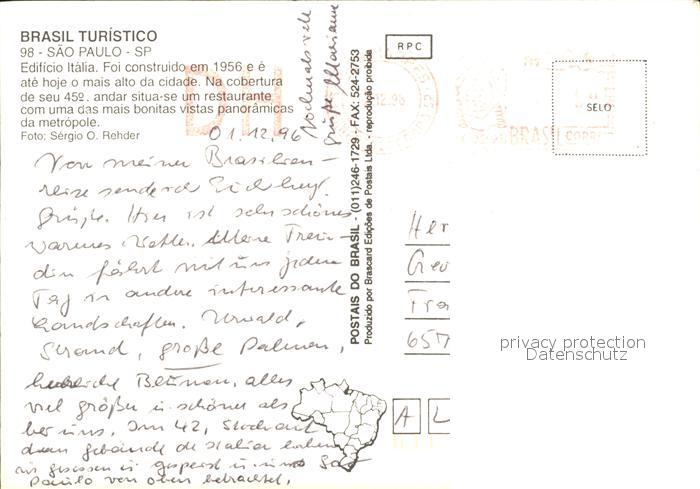 BRASIL TURÍSTICO
98 - SÃO PAULO - SP
Edifício Itália. Foi construido em 1956 e é
até hoje o mais alto da cidade. Na cobertura
de seu 45º. andar situa-se um restaurante
com uma das mais bonitas vistas panorâmicas
da metrópole.
Foto: Sérgio O. Rehder
01.12.96
Von meiner Brasilien-
reise sende ich Euch herzl.
Grüße. Hier ist sehr schönes
warmes Wetter. Meine Freun-
din fährt mit uns jeden
Tag in andere interessante
Landschaften. Urwald,
Strand, große Palmen,
Blumen, alles
viel größer u. schöner als
bei uns. Im 42. Stockwerk
dem Gebäude de Italia haben
wir gesessen u. gespeist u. uns Sao
Paulo von oben betrachtet.
Nochmals viele
Grüße Mariane
POSTAIS DO BRASIL - (011)246-1729 - FAX: 524-2753
Produzido por Brascard Edições de Postais Ltda. - reprodução proibida
RPC
SELO
BRASIL CORREIO
Her
Geo
Fra
657
AL
privacy protection
Datenschutz